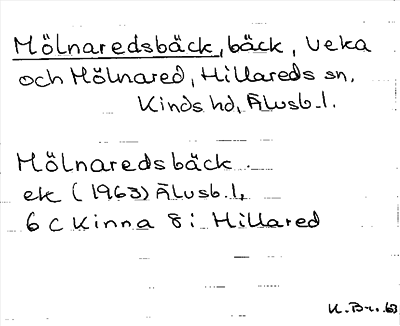 Mölnaredsbäck, bäck, Veka
och Mölnared, Hillareds sn,
Kinds hd, Älvsb. l.
Mölnaredsbäck
ek (1963) Älvsb. l,
6 C Kinna 8 i Hillared
K. Br. 63